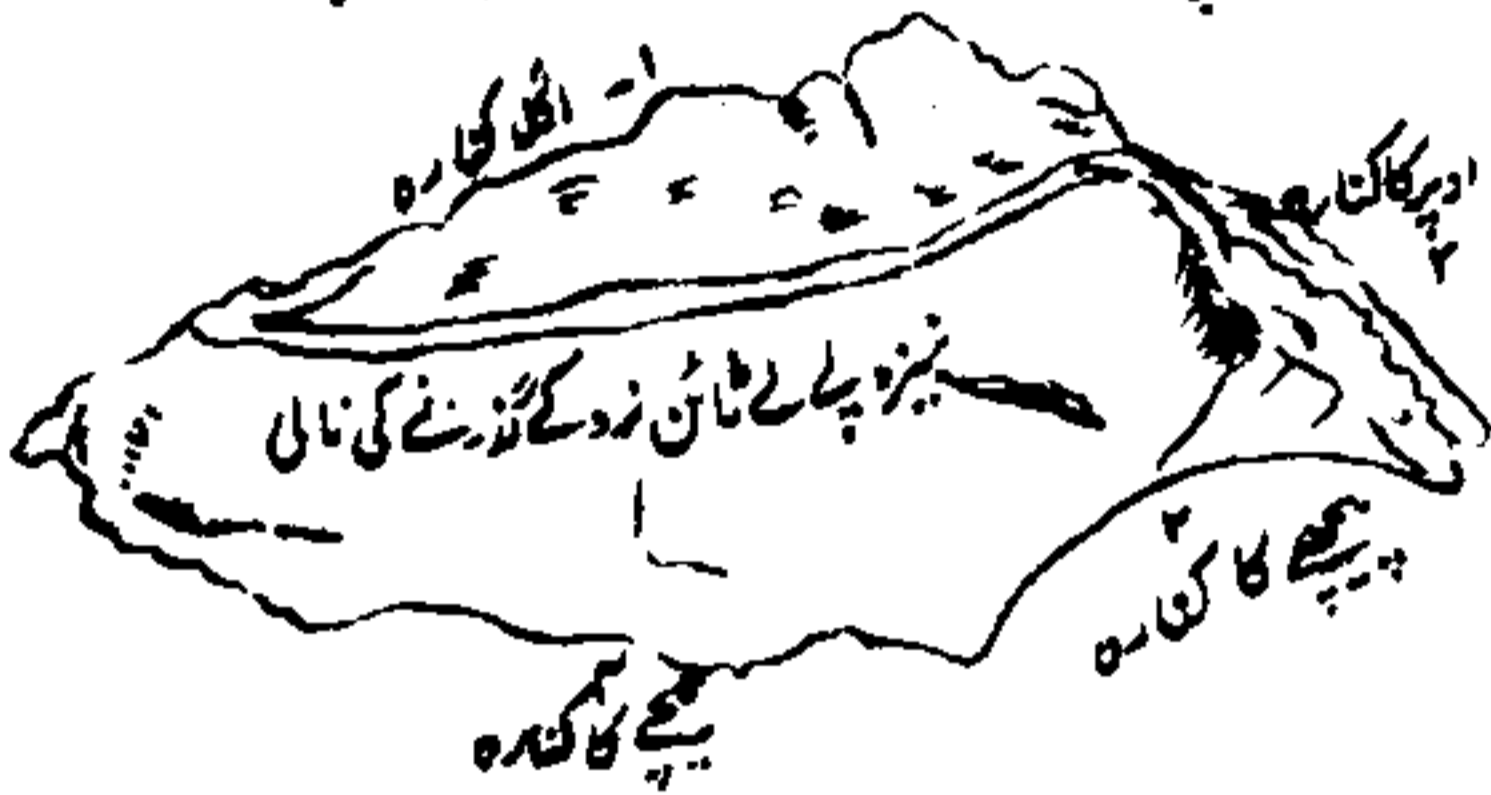 ۱- اگلا کنارہ
اوپر کا کنارہ
۲
نیزو پلے لے ٹائن نرو کے گذرنے کی نالی
۳
پیچھے کا کنارہ
۴
نیچے کا کنارہ